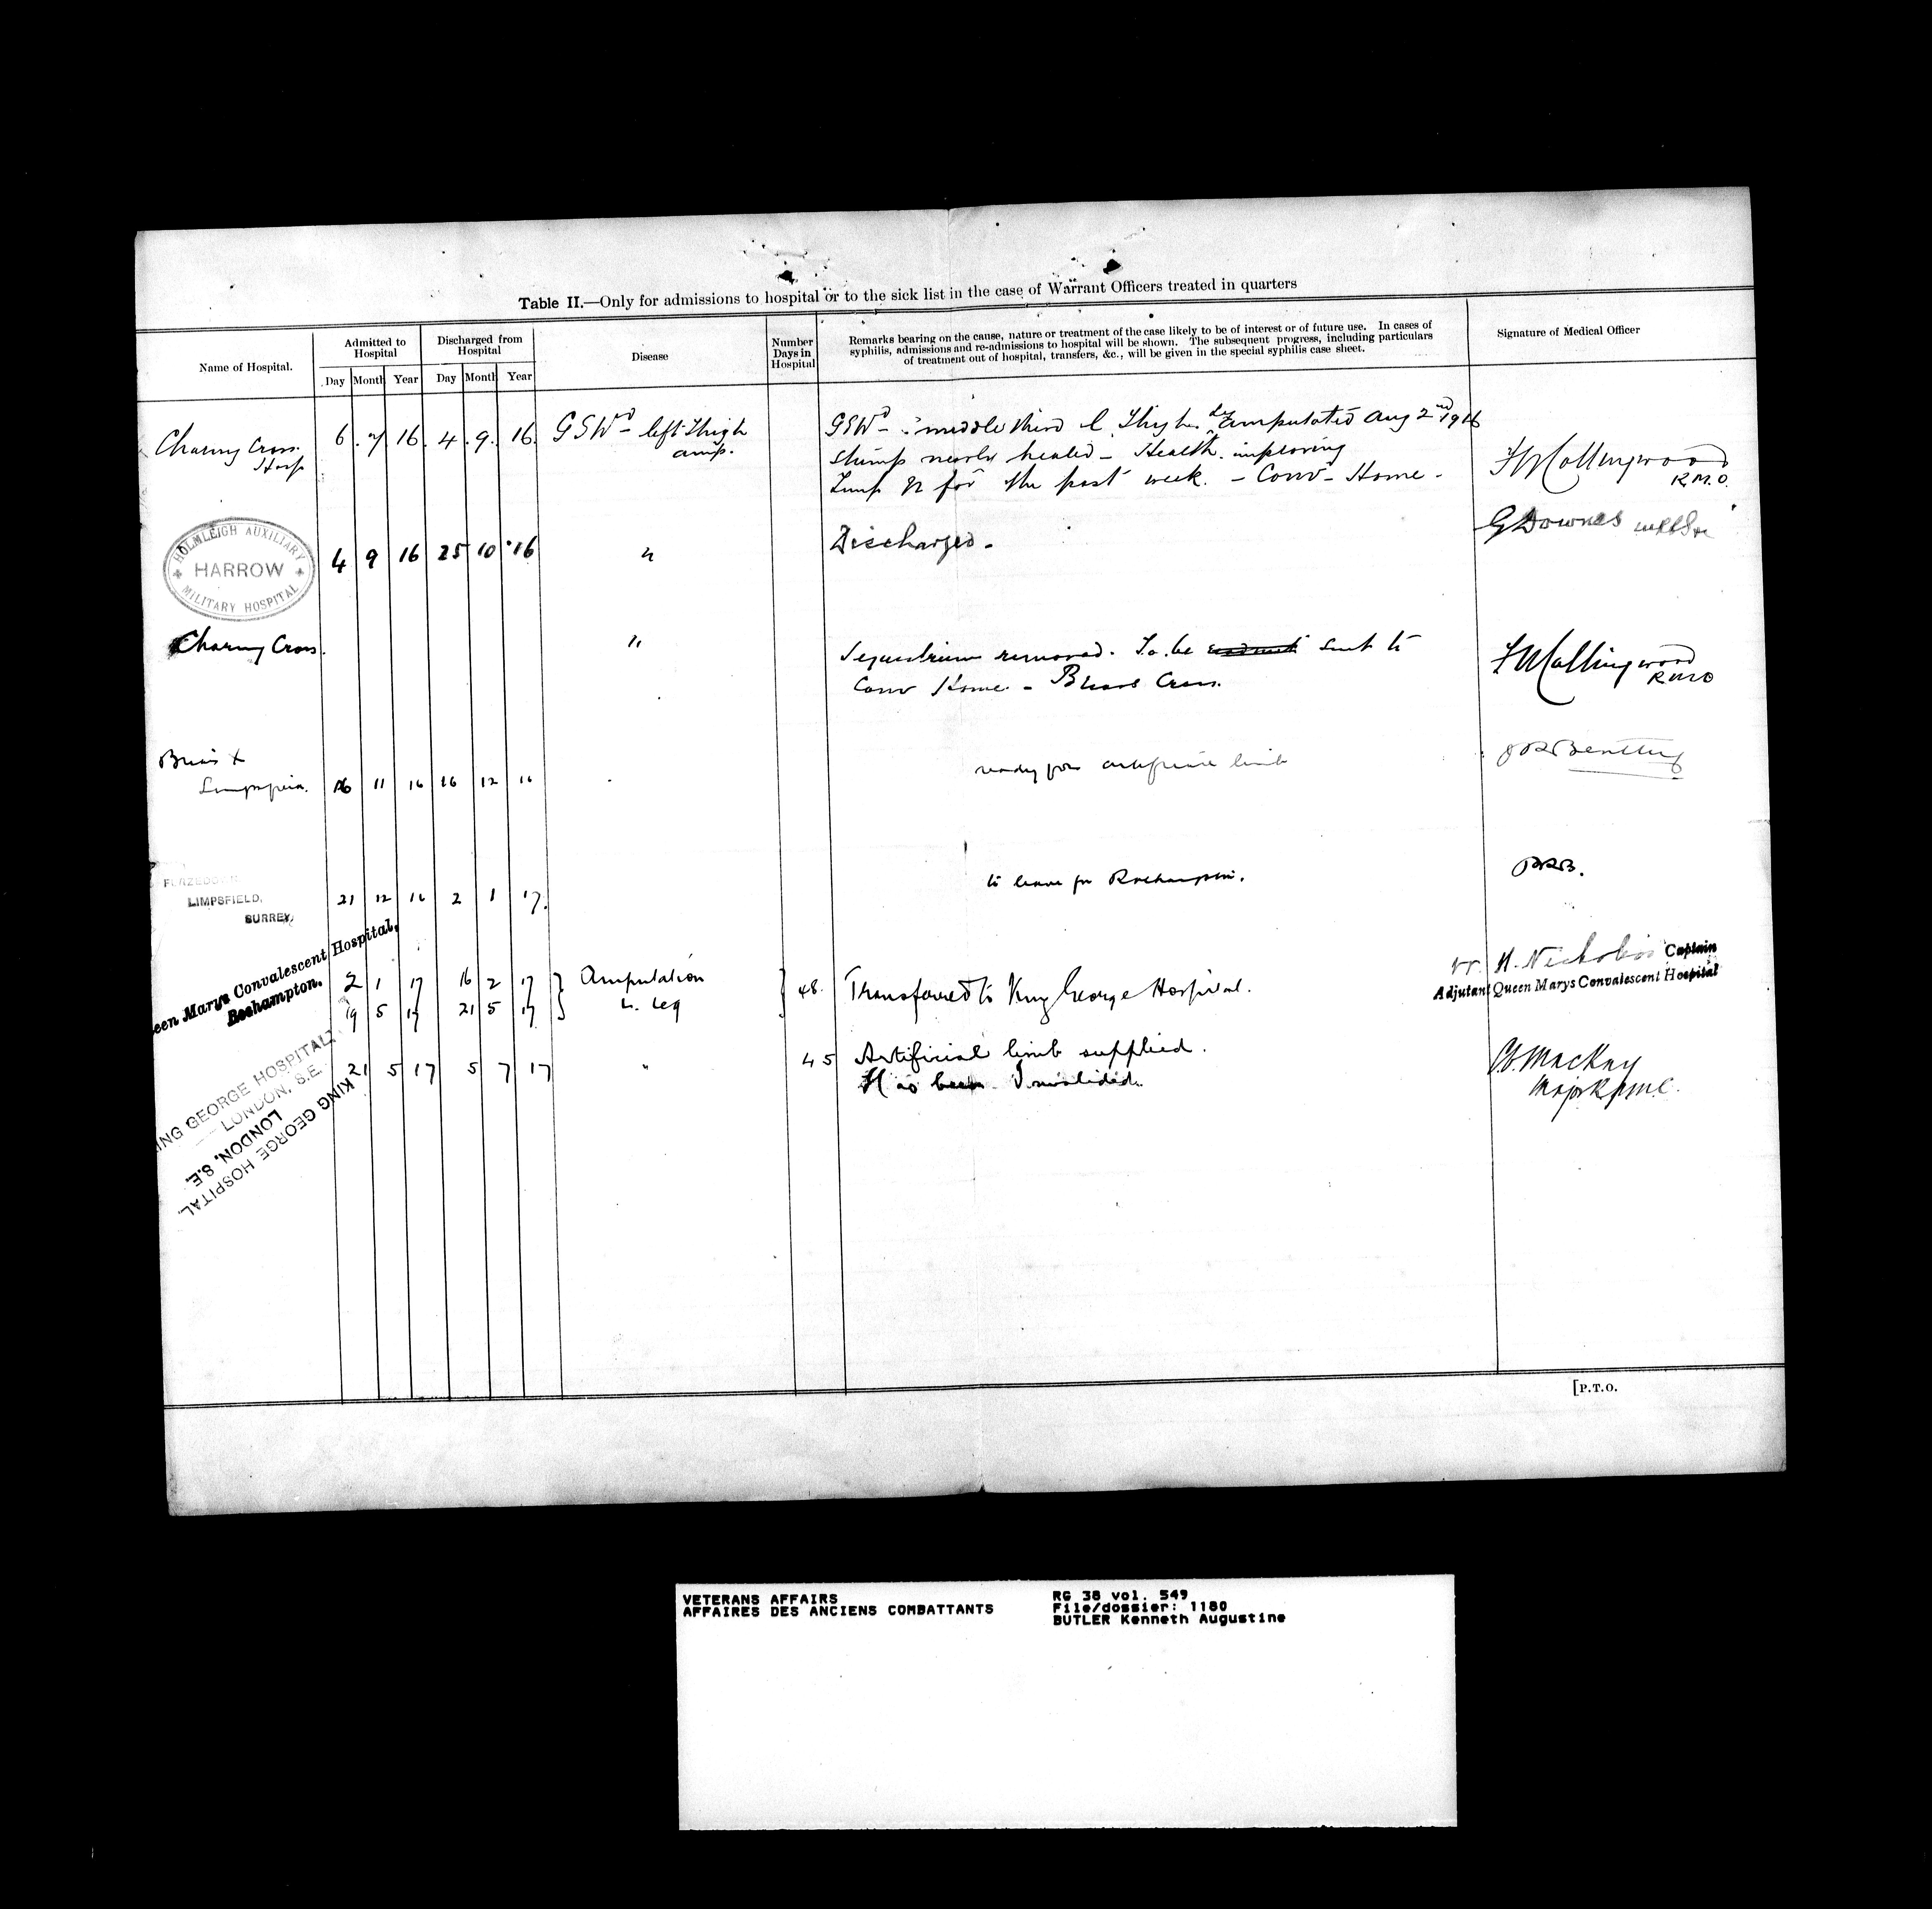 Table II.—Only for admissions to hospital or to the sick list in the case of Warrant Officers treated in quarters
Name of Hospital.
Admitted to Hospital
Discharged from Hospital
Day Month Year Day Month Year
Disease
Number Days in Hospital
Remarks bearing on the cause, nature or treatment of the case likely to be of interest or of future use. In cases of
syphilis, admissions and re-admissions to hospital will be shown. The subsequent progress, including particulars
of treatment out of hospital, transfers, &c., will be given in the special syphilis case sheet.
Signature of Medical Officer
Charing Cross Hosp 6 . 7 16 . 4 . 9 . 16 . GSWd left Thigh amp.
GSWd middle third l. Thigh. Amputated Aug 2nd 1916
Stump nearly healed - Health improving
Temp N for the past week. - Conv - Home -
Collingwood R.M.O.
HOLMLEIGH AUXILIARY
HARROW
MILITARY HOSPITAL
4 9 16 25 10 16 "
Discharged -
G Downes
Charing Cross. "
Sequestrum removed. To be sent to
Conv Home - Briar Cross.
Collingwood RMO
Limpsfield. 16 11 16 16 12 16
ready for artificial limb
LIMPSFIELD,
SURREY
21 12 16 2 1 17.
to leave for Roehampton.
een Marys Convalescent Hospital,
Roehampton.
2 1 17 16 2 17
19 5 17 21 5 17
Amputation
L. Leg
48.
Transferred to King George Hospital.
H. Nicholson Captain
Adjutant Queen Marys Convalescent Hospital
ING GEORGE HOSPITAL
LONDON, S.E.
KING GEORGE HOSPITAL,
LONDON, S.E.
21 5 17 5 7 17 " 45
Artificial limb supplied.
Has been Invalided.
MacKay
Major
[P.T.O.
VETERANS AFFAIRS
AFFAIRES DES ANCIENS COMBATTANTS
RG 38 vol. 549
File/dossier: 1180
BUTLER Kenneth Augustine